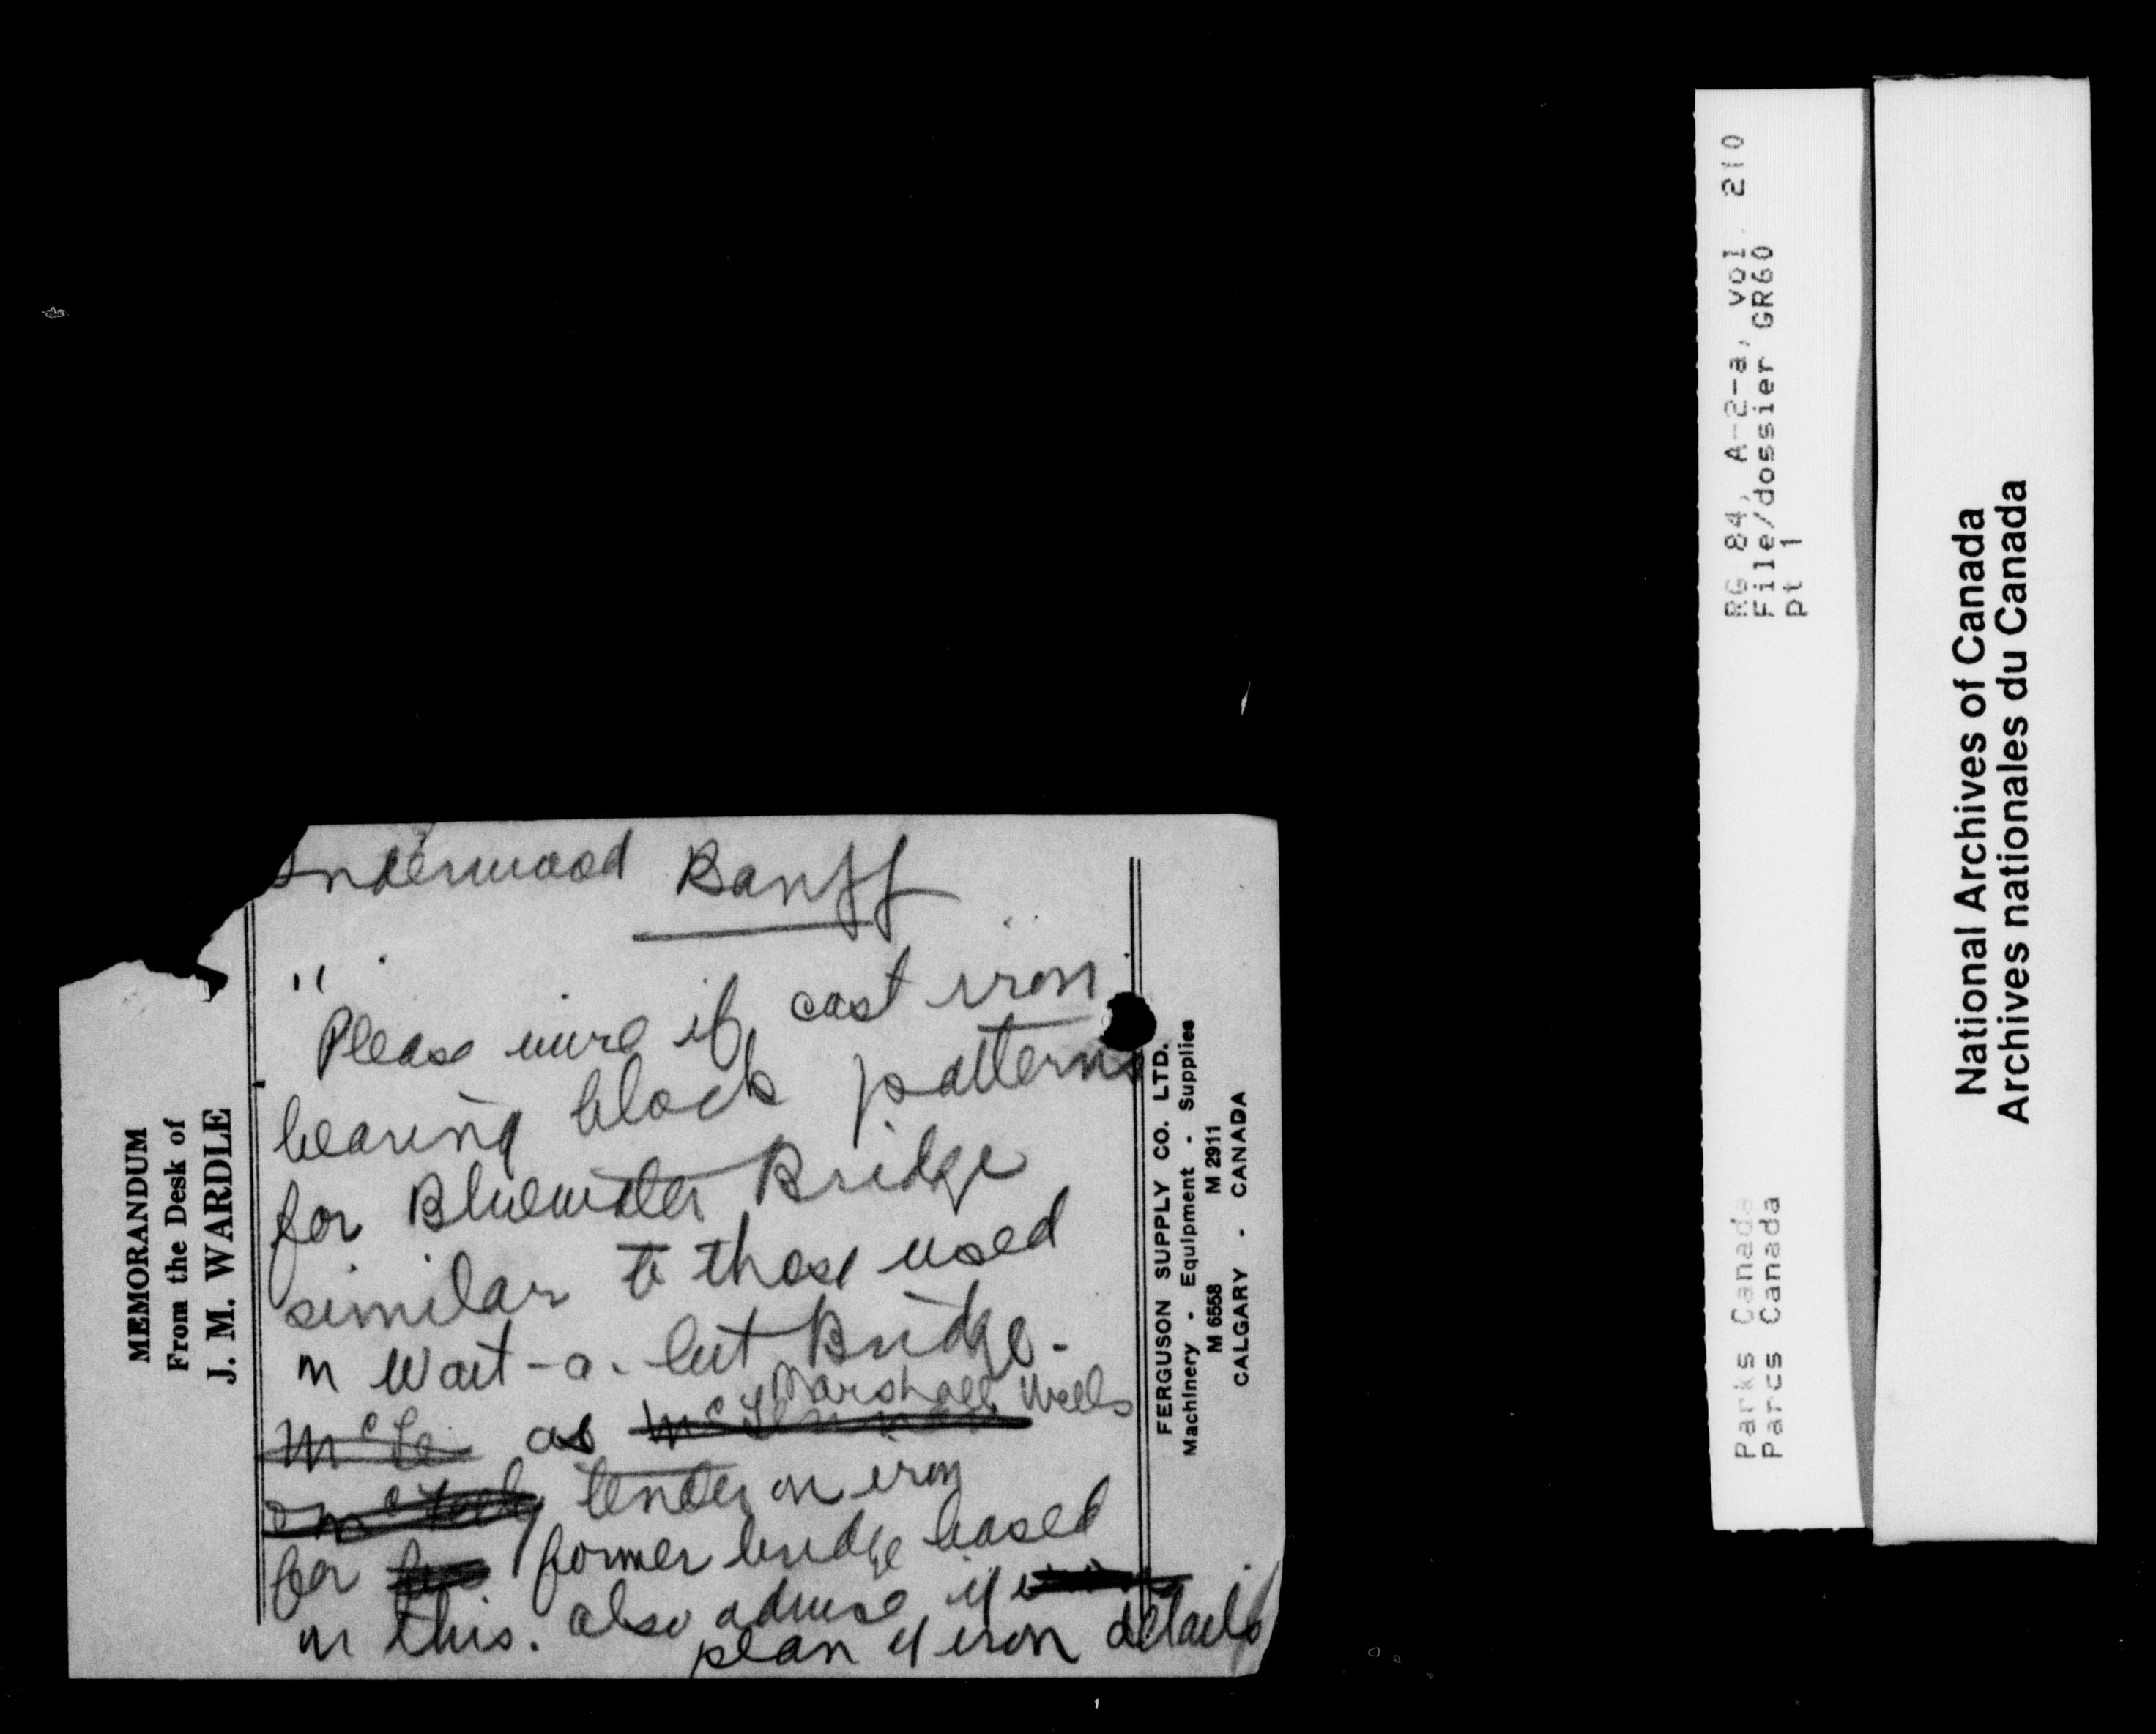 Underwood Banff
"Please wire if cast iron
bearing block patterns
for Bluewater Bridge
similar to those used
in Wait-a-bit Bridge.
Marshall Wells
McLe as
tender on iron
for former bridge based
on this. also advise if
plan of iron details
MEMORANDUM
From the Desk of
J. M. WARDLE
FERGUSON SUPPLY CO. LTD.
Machinery - Equipment - Supplies
M 6558 M 2911
CALGARY - CANADA
RG 84, A-2-a, vol. 210
File/dossier GR60
pt 1
Parks Canada
Parcs Canada
National Archives of Canada
Archives nationales du Canada